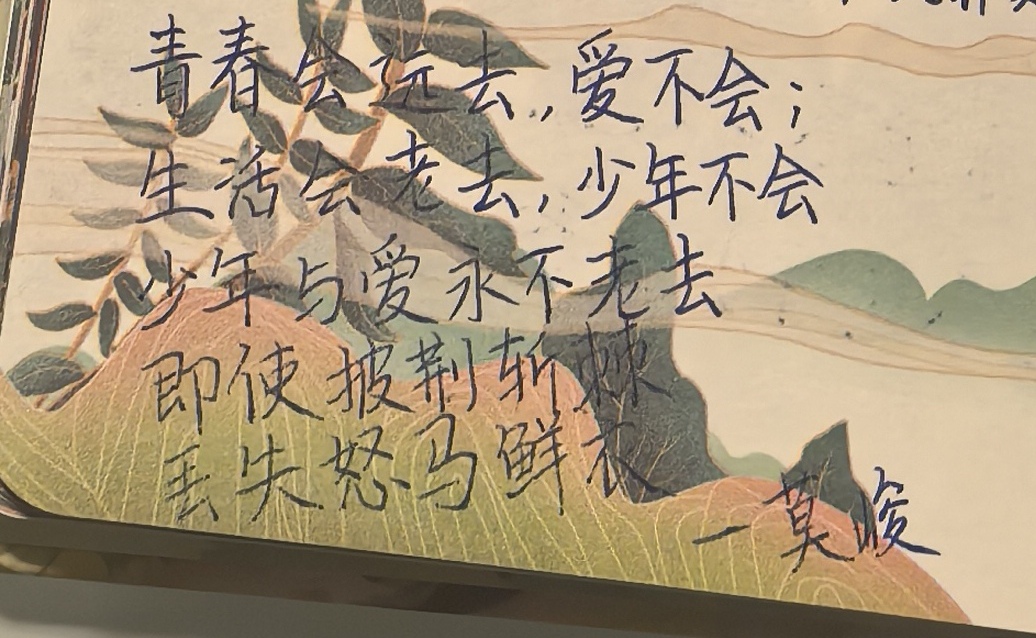 青春会远去,爱不会;
生活会老去,少年不会
少年与爱永不老去
即使披荆斩棘
丢失怒马鲜衣
—莫峻